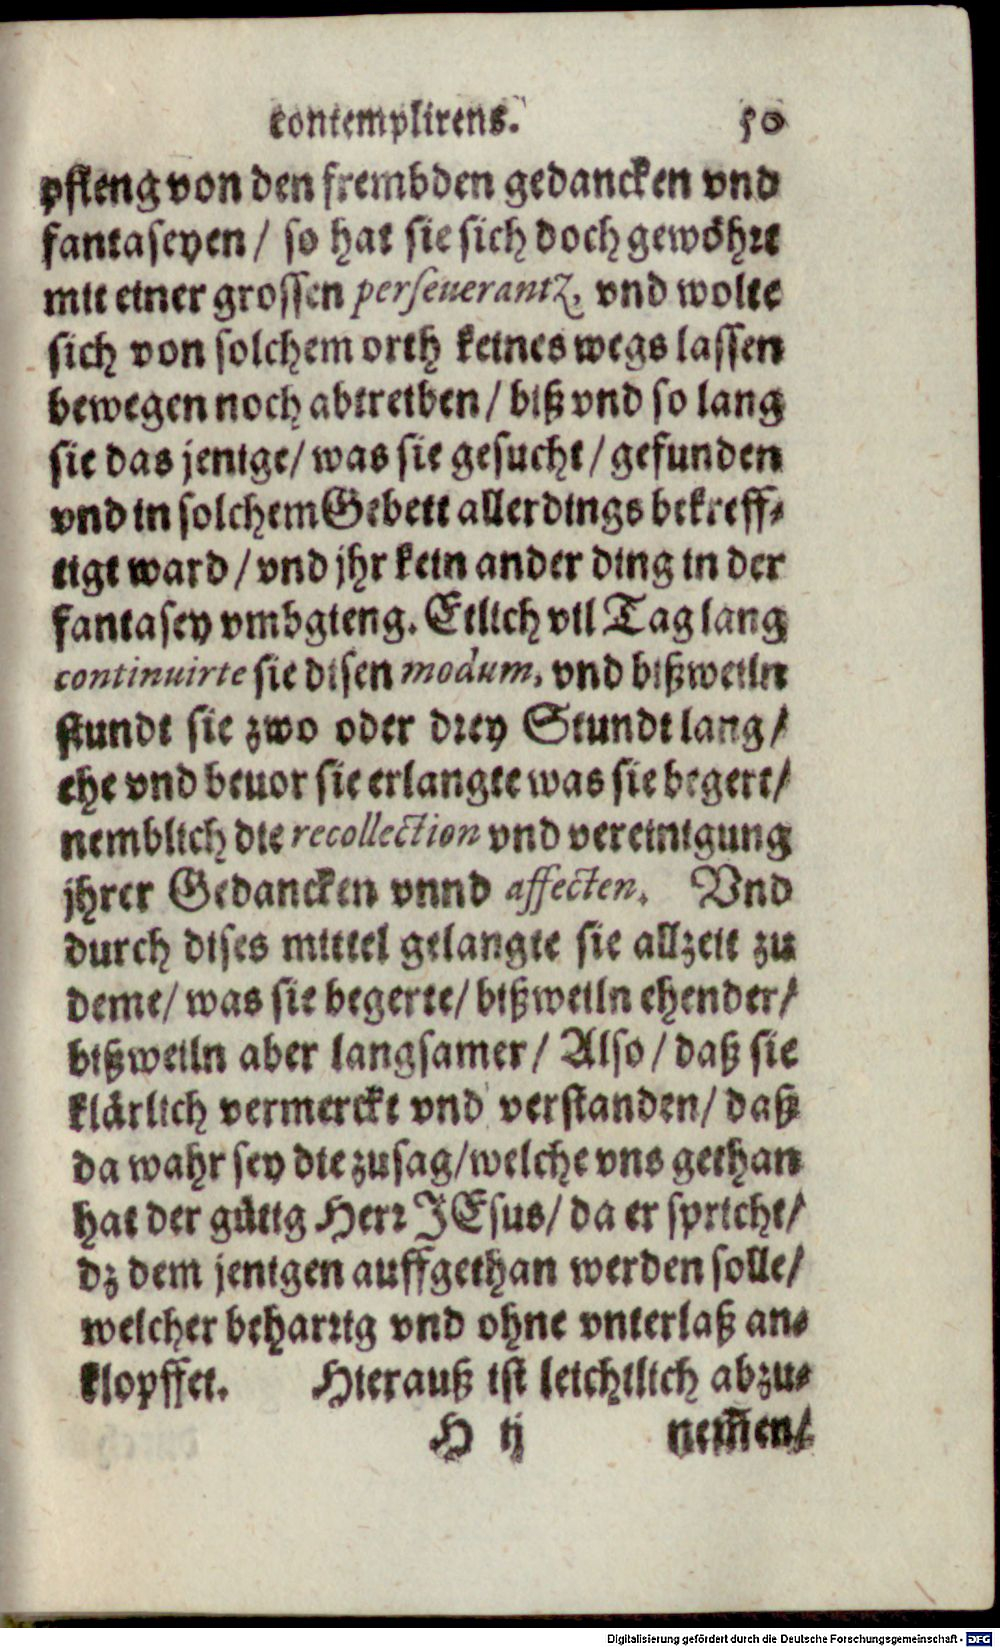 contemplirens. 50
pfieng von den frembden gedancken vnd
fantaseyen / so hat sie sich doch gewöhrt
mit einer grossen perseuerantz, vnd wolte
sich von solchem orth keines wegs lassen
bewegen noch abtreiben / biß vnd so lang
sie das jenige / was sie gesucht / gefunden
vnd in solchem Gebett allerdings bekreff-
tigt ward / vnd jhr kein ander ding in der
fantasey vmbgieng. Etlich vil Tag lang
continuirte sie disen modum, vnd bißweiln
stundt sie zwo oder drey Stundt lang /
ehe vnd beuor sie erlangte was sie begert /
nemblich die recollection vnd vereinigung
jhrer Gedancken vnnd affecten. Vnd
durch dises mittel gelangte sie allzeit zu
deme / was sie begerte / bißweiln ehender /
bißweiln aber langsamer / Also / daß sie
klärlich vermerckt vnd verstanden / daß
da wahr sey die zusag / welche vns gethan
hat der gütig Herr JEsus / da er spricht /
dz dem jenigen auffgethan werden solle /
welcher beharrig vnd ohne vnterlaß an-
klopffet. Hierauß ist leichtlich abzu-
H ij nem̃en /
Digitalisierung gefördert durch die Deutsche Forschungsgemeinschaft - DFG